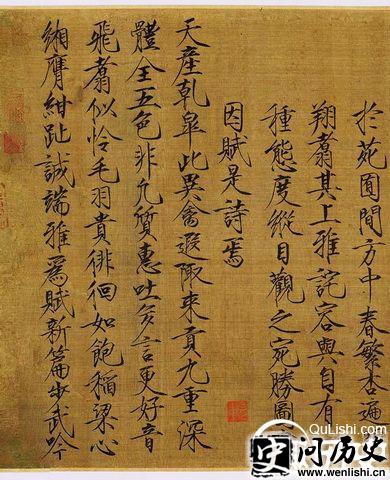 於苑囿間方中春繁杏遍
翔翥其上雅詫容與自有
種態度縱目觀之宛勝圖
因賦是詩焉
天產乾皋此異禽遐陬來貢九重深
體全五色非凡質惠吐多言更好音
飛翥似怜毛羽貴徘徊如飽稻粱心
緗膺紺趾誠端雅爲賦新篇步武吟
QuLishi.com
问历史
www.wenlishi.com